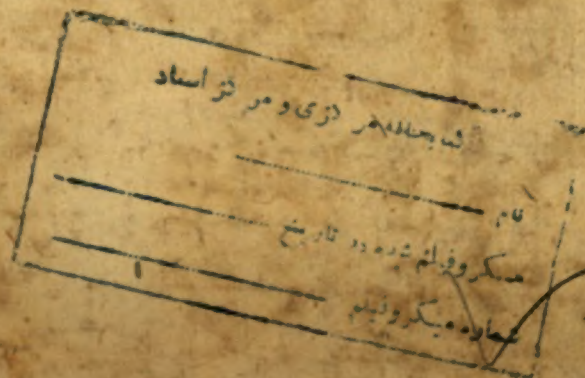 کتابخانه مرکزی و مرکز اسناد
نام
میکروفیلم شده در تاریخ
شماره میکروفیلم